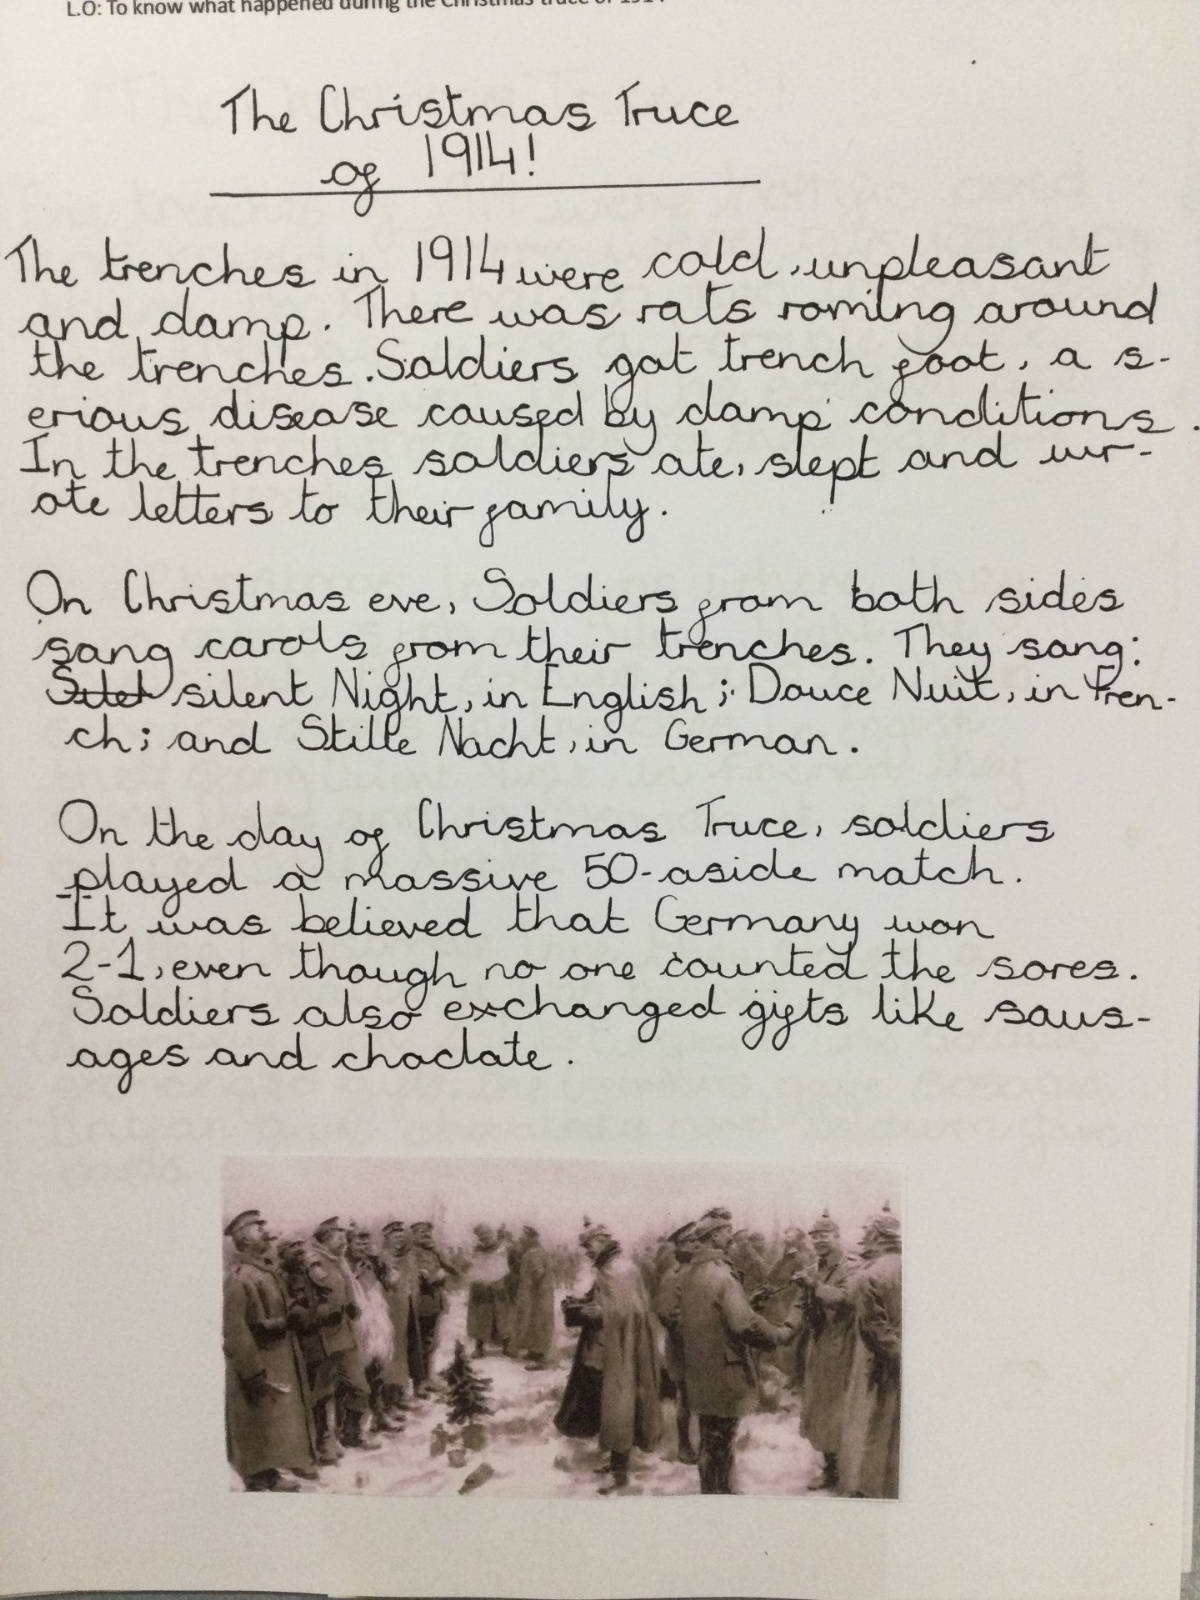 L.O: To know what happened during the Christmas truce of 1914
The Christmas Truce
of 1914!
The trenches in 1914 were cold, unpleasant
and damp. There was rats roming around
the trenches. Soldiers got trench foot, a s-
erious disease caused by damp conditions.
In the trenches soldiers ate, slept and wr-
ote letters to their family.
On Christmas eve, Soldiers from both sides
sang carols from their trenches. They sang:
silent Night, in English; Douce Nuit, in Fren-
ch; and Stille Nacht, in German.
On the day of Christmas Truce, soldiers
played a massive 50-aside match.
It was believed that Germany won
2-1, even though no one counted the sores.
Soldiers also exchanged gifts like saus-
ages and choclate.